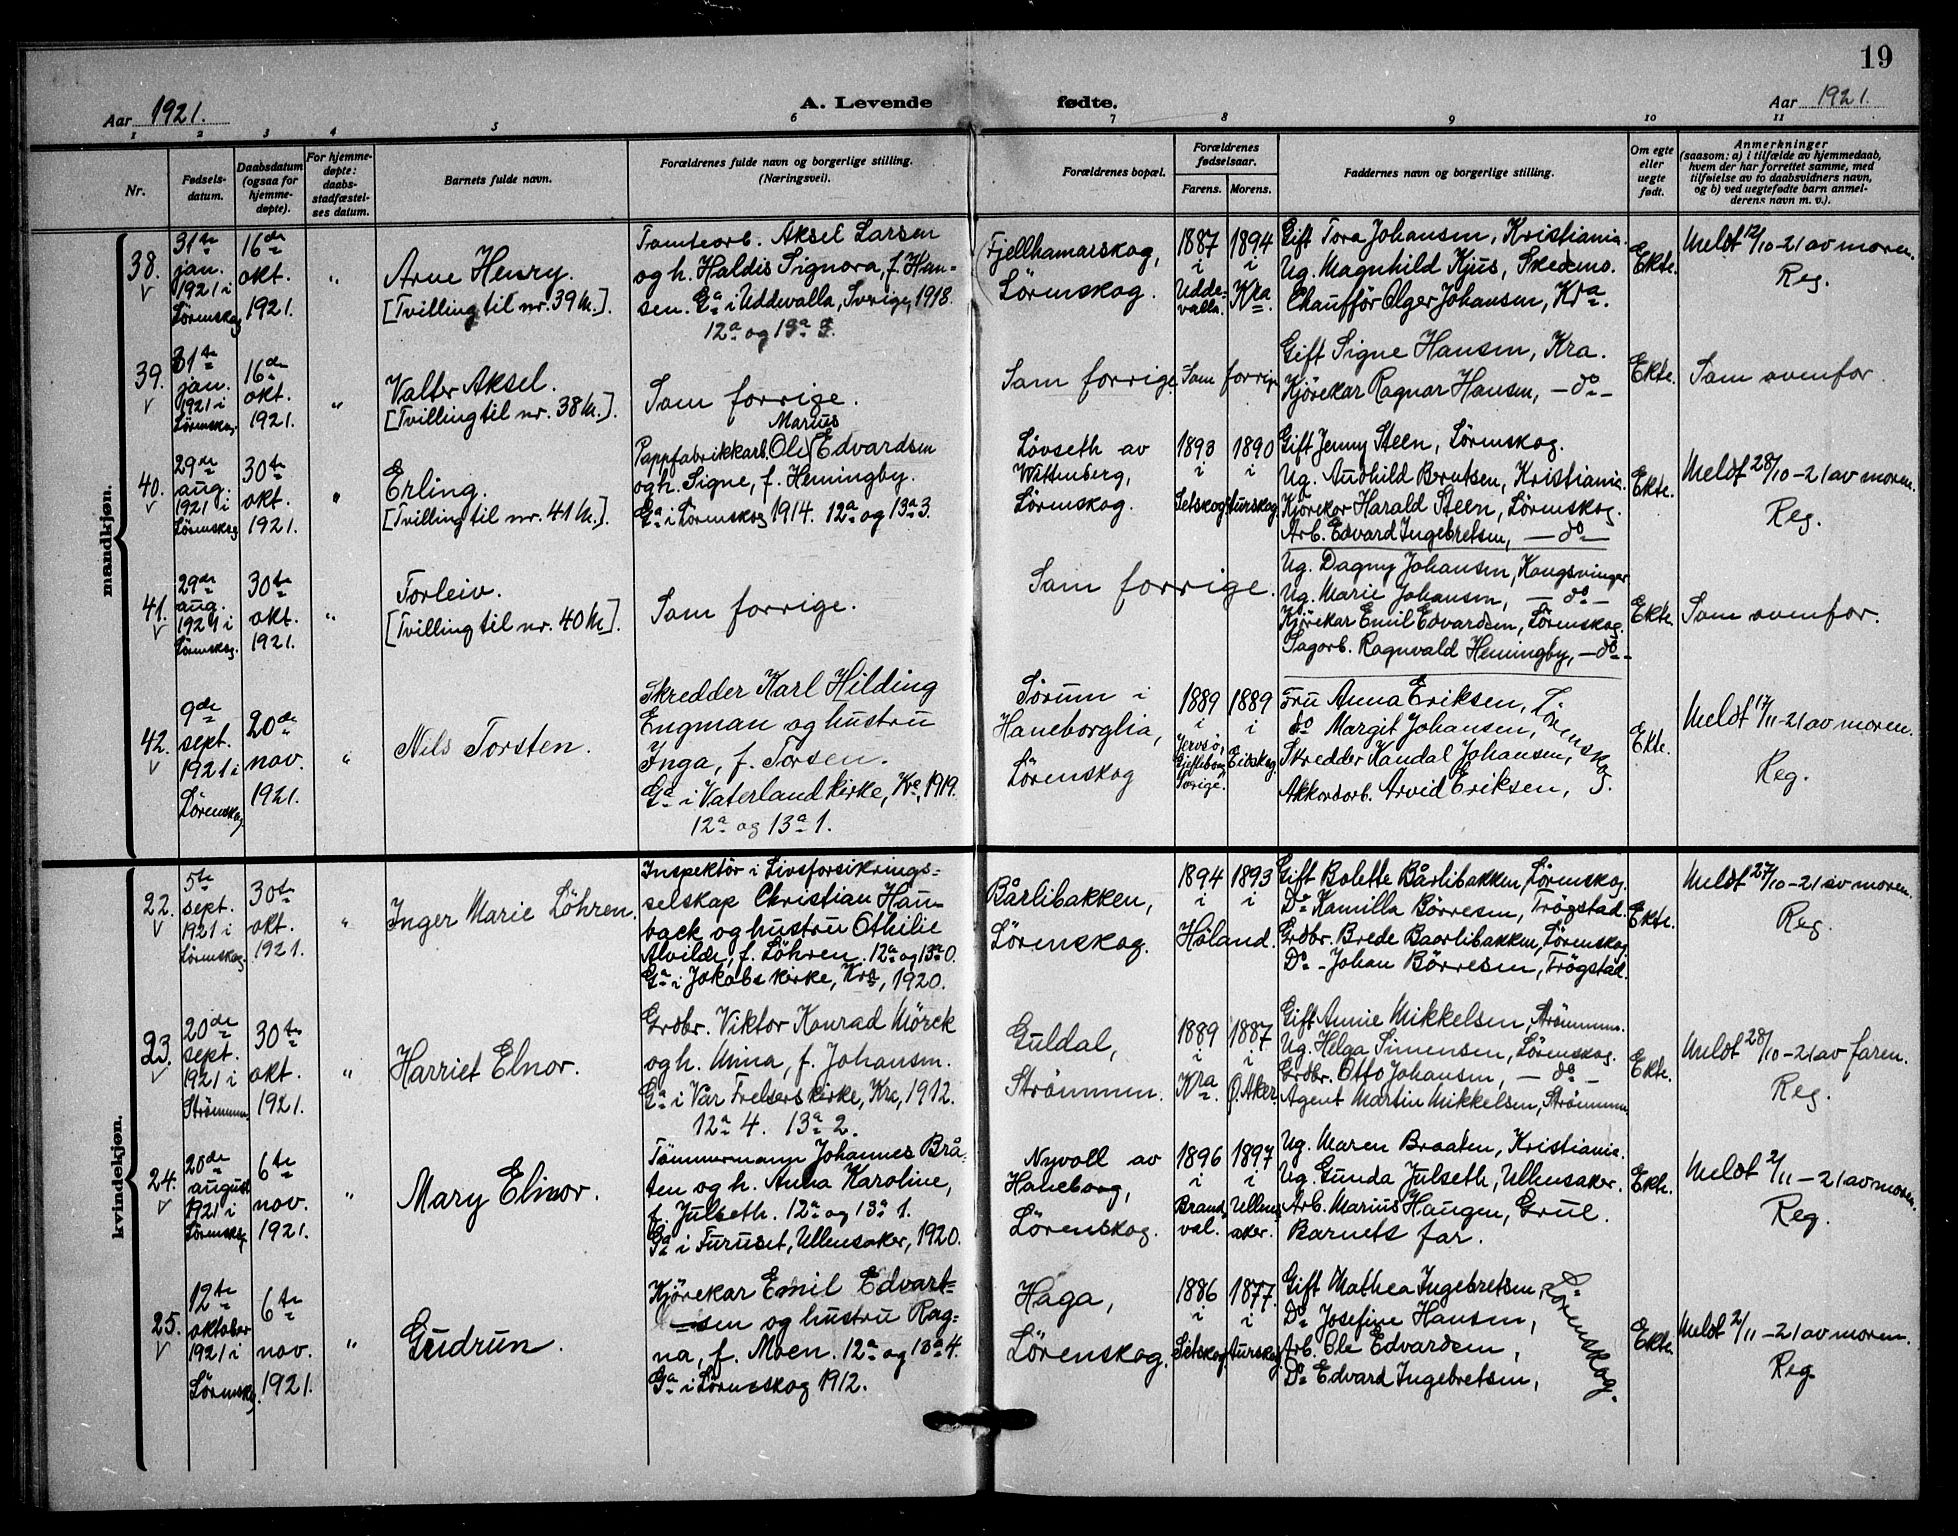 19
Aar 1921.
A. Levende fødte.
Aar 1921.
1 2 3 4 5 6 7 8 9 10 11
Nr.
Fødsels-
datum.
Daabsdatum
(ogsaa for
hjemme-
døpte).
For hjemme-
døpte:
daabs-
stadfæstel-
ses datum.
Barnets fulde navn.
Forældrenes fulde navn og borgerlige stilling.
(Næringsvei).
Forældrenes bopæl.
Forældrenes
fødselsaar.
Farens. Morens.
Faddernes navn og borgerlige stilling.
Om egte
eller
uegte
født.
Anmerkninger
(saasom: a) i tilfælde av hjemmedaab,
hvem der har forrettet samme, med
tilføielse av to daabsvidners navn,
og b) ved uegtefødte barn anmel-
derens navn m. v.).
mandkjøn.
38.
31te
jan.
1921 i
Lörenskog
16de
okt.
1921.
"
Arne Henry.
[Tvilling til nr. 39 M.].
Tomteorb. Aksel Larsen
og h. Haldis Signora, f. Han-
sen. Ga i Uddevalla, Sverige, 1918.
12a og 13a 3.
Fjellhamarskog,
Lörenskog.
1887
i
Udde-
valla.
1894
i
Kra.
Gift Tora Johansen, Kristiania.
Ug. Magnhild Kjus, Skedsmo.
Chaufför Olger Johansen, Kra.
Ekte.
Meldt 12/10-21 av moren.
Reg.
39.
31te
jan.
1921 i
Lörenskog
16de
okt.
1921.
"
Valter Aksel.
[Tvilling til nr. 38 M.].
Som forrige.
Som forrige
Som forrige
Gift Signe Hansen, Kra.
Kjörekar Ragnar Hansen, - do -
Ekte.
Som ovenfor.
40.
29de
aug.
1921 i
Lörenskog
30te
okt.
1921.
"
Erling.
[Tvilling til nr. 41 M.].
Marius
Pappfabrikkarb. Ole Edvardsen
og h. Signe, f. Hemingby.
Ga i Lörenskog 1914. 12a og 13a 3.
Lövseth av
Wittenberg,
Lörenskog.
1893
i
Setskog
1890
i
Aurskog.
Gift Jenny Steen, Lörenskog.
Ug. Audhild Berntsen, Kristiania.
Kjörekar Harald Steen, Lörenskog.
Arb. Edvard Ingebretsen, - do -
Ekte.
Meldt 28/10-21 av moren.
Reg.
41.
29de
aug.
1921 i
Lörenskog.
30te
okt.
1921.
"
Torleiv.
[Tvilling til nr. 40 M.].
Som forrige.
Som forrige.
Ug. Dagny Johansen, Kongsvinger
Ug. Marie Johansen, - do -
Kjörekar Emil Edvardsen, Lörenskog.
Sagarb. Ragnvald Hemingby, - do -
Ekte.
Som ovenfor.
42.
9de
sept.
1921 i
Lörenskog
20de
nov.
1921.
"
Nils Torsten.
Skredder Karl Hilding
Engman og hustru
Inga, f. Torsen.
Ga i Vaterland kirke, Kra, 1919.
12a og 13a 1.
Sörum i
Haneborglia,
Lörenskog
1889
i
Jervsö,
Gefleborg
Sverige.
1889
i
Eidskog.
Fru Anna Eriksen, Lörenskog.
do Margit Johansen,
Skredder Kandal Johansen,
Akkordarb. Arvid Eriksen,
Ekte.
Meldt 17/11-21 av moren.
Reg.
kvindekjøn.
22.
5te
sept.
1921 i
Lörenskog.
30te
okt.
1921.
"
Inger Marie Löhren.
Inspektör i Livsforsikrings-
selskap Christian Hau-
back og hustru Othilie
Alvilde, f. Löhren. 12a og 13a 0.
Ga i Jakobs kirke, Kra, 1920.
Bårlibakken,
Lörenskog.
1894
i
1893
i
Höland.
Gift Bolette Bårlibakken, Lörenskog.
Do Kamilla Börresen, Trögstad.
Grdbr. Brede Baarlibakken, Lörenskog
Do - Johan Börresen, Trögstad.
Ekte.
Meldt 27/10-21 av moren.
Reg.
23.
20de
sept.
1921 i
Strömmen
30te
okt.
1921.
"
Harriet Elnor.
Grdbr. Viktor Konrad Mörck
og h. Mina, f. Johansen.
Ga i Vår Frelsers kirke, Kra, 1912.
12a 4. 13a 2.
Guldal,
Strömmen.
1889
i
Kra.
1887
i
Ö. Aker.
Gift Annie Mikkelsen, Strömmen.
Ug. Helga Simensen, Lörenskog.
Grdbr. Otto Johansen, - do -
Agent Martin Mikkelsen, Strömmen
Ekte.
Meldt 28/10-21 av faren.
Reg.
24.
20de
august
1921 i
Lörenskog
6te
nov.
1921.
"
Mary Elinor.
Tömmermann Johannes Brå-
ten og h. Anna Karoline,
f. Julseth. 12a og 13a 1.
Ga i Furuset, Ullensaker, 1920.
Nyvoll av
Haneborg,
Lörenskog.
1896
i
Brand-
val.
1897
i
Ullens-
aker.
Ug. Maren Braaten, Kristiania.
Ug. Gunda Julseth, Ullensaker.
Arb. Marius Haugen, Grue.
Barnets far.
Ekte.
Meldt 2/11-21 av moren.
Reg.
25.
12te
oktober
1921 i
Lörenskog.
6te
nov.
1921.
"
Gudrun.
Kjörekar Emil Edvart-
sen og hustru Rag-
na, f. Moen. 12a og 13a 4.
Ga i Lörenskog 1912.
Haga,
Lörenskog.
1886
i
Setskog
1877.
i
Aurskog
Gift Mathea Ingebretsen, Lörenskog.
Do Josefine Hansen,
Arb. Ole Edvardsen,
Do Edvard Ingebretsen,
Ekte.
Meldt 2/11-21 av moren.
Reg.